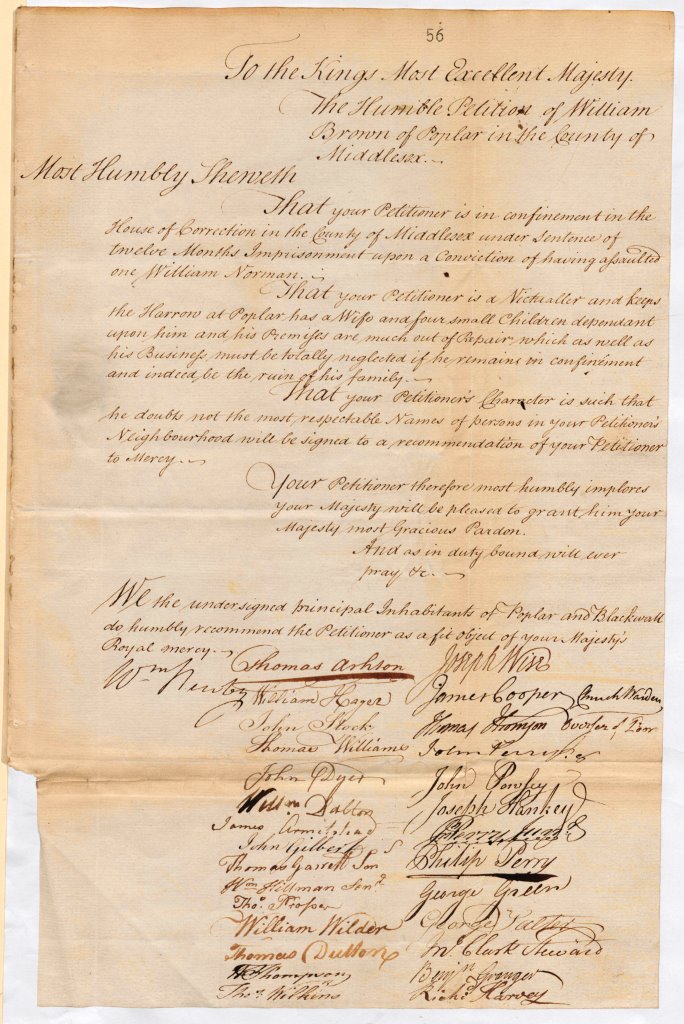 56
To the Kings Most Excellent Majesty.
The Humble Petition of William
Brown of Poplar in the County of
Middlesex.
Most Humbly Sheweth
That your Petitioner is in confinement in the
House of Correction in the County of Middlesex under sentence of
twelve Months Imprisonment upon a Conviction of having assaulted
one William Norman.
That your Petitioner is a Victualler and keeps
the Harrow at Poplar has a Wife and four small Children dependant
upon him and his Premises are much out of Repair, which as well as
his Business, must be totally neglected if he remains in confinement
and indeed be the ruin of his family.
That your Petitioner's Character is such that
he doubts not the most respectable Names of persons in your Petitioner's
Neighbourhood will be signed to a recommendation of your Petitioner
to Mercy.
Your Petitioner therefore most humbly implores
your Majesty will be pleased to grant him your
Majesty most Gracious Pardon.
And as in duty bound will ever
pray &c.
We the undersigned principal Inhabitants of Poplar and Blackwall
do humbly recommend the Petitioner as a fit object of your Majesty's
Royal mercy.
Thomas Ashton Joseph Wise
Wm Newby
William Hager James Cooper Church Warden
John Stock Thomas Thomson Overseer of Poor
Thomas Williams John Perry
John Dyer John Powsey
Willm Dalton Joseph Hankey
James Armistead Perry Junr
John Gilbert Philip Perry
Thomas Garrett Sen
Wm Hillman Senr George Green
Thos Prosser
William Wilder George
Thomas Dutton Mr Clark Steward
Thompson Benjn Granger
Thos Wilkins Richd Harvey